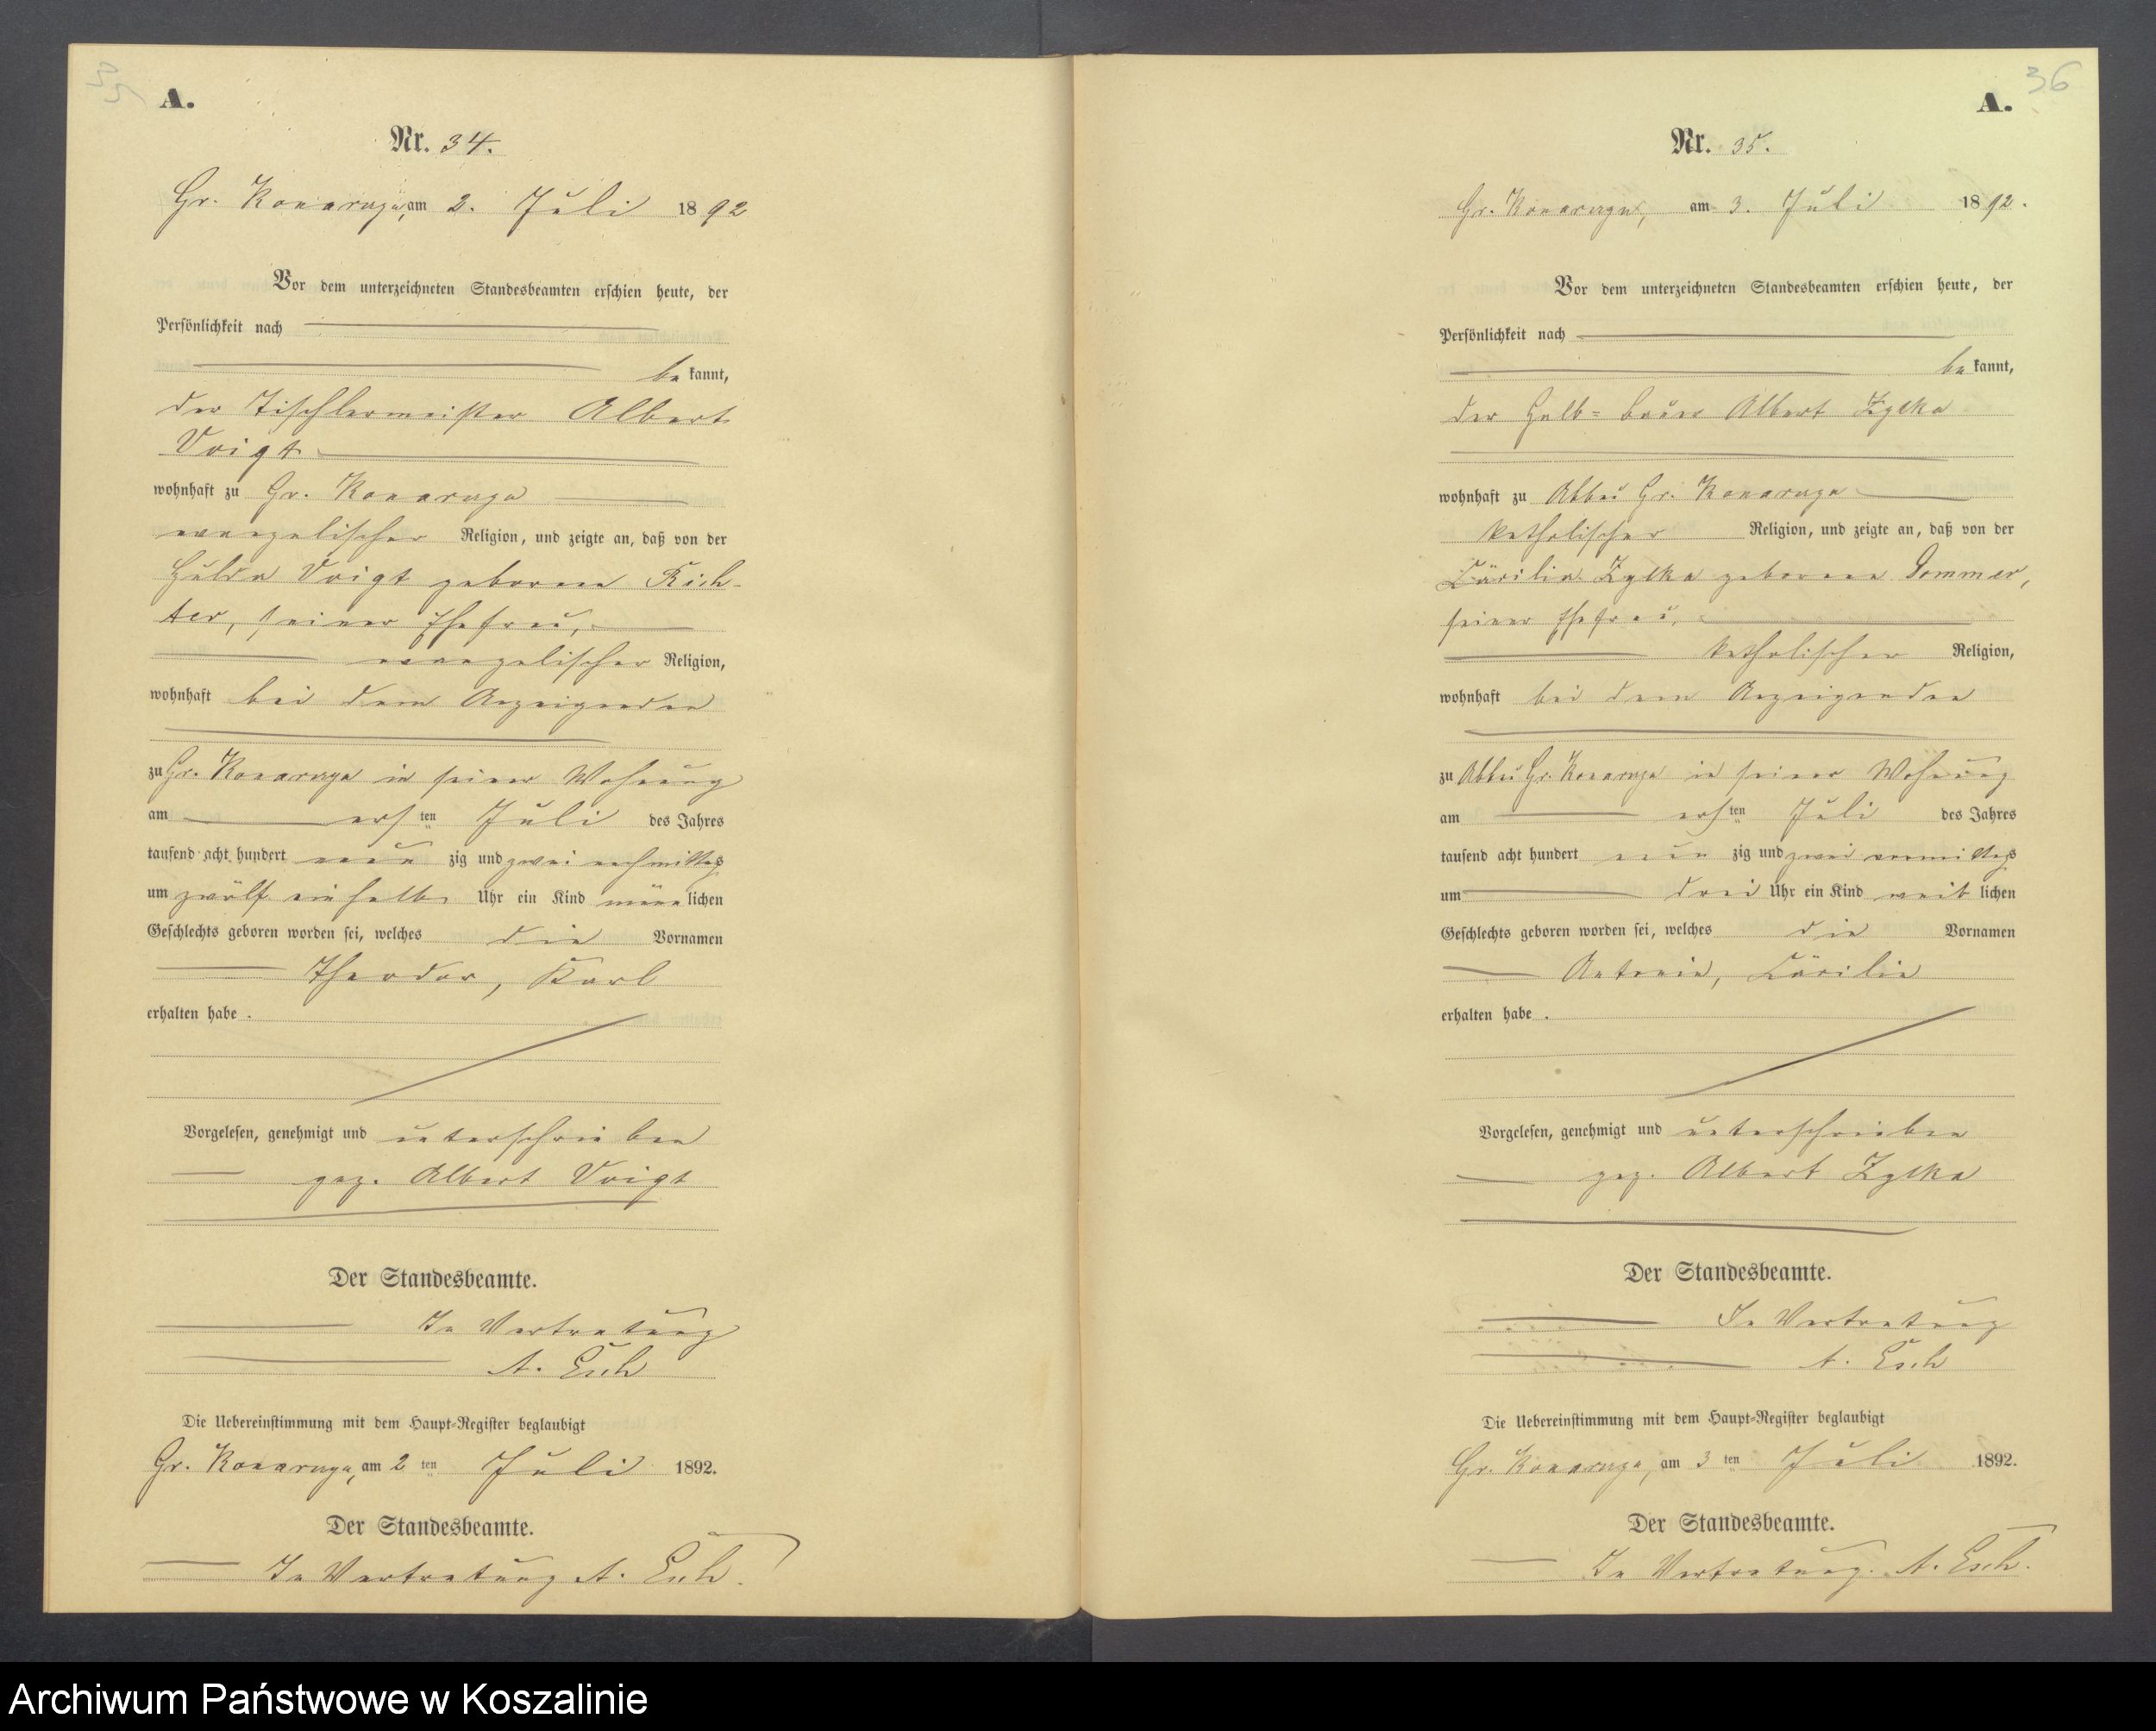 35
A.
Nr. 34.
Gr. Konarzyn, am 2. Juli 1892
Vor dem unterzeichneten Standesbeamten erschien heute, der
Persönlichkeit nach
be kannt,
der Tischlermeister Albert
Voigt
wohnhaft zu Gr. Konarzyn
evangelischer Religion, und zeigte an, daß von der
Hulda Voigt geborene Rich-
ter, seiner Ehefrau,
evangelischer Religion,
wohnhaft bei dem Anzeigenden
zu Gr. Konarzyn in seiner Wohnung
am ersten Juli des Jahres
tausend acht hundert neun zig und zwei nachmittags
um zwölf ein halb Uhr ein Kind männlichen
Geschlechts geboren worden sei, welches die Vornamen
Theodor, Karl
erhalten habe.
Vorgelesen, genehmigt und unterschrieben
gez. Albert Voigt
Der Standesbeamte.
In Vertretung
A. Esch
Die Uebereinstimmung mit dem Haupt-Register beglaubigt
Gr. Konarzyn, am 2 ten Juli 1892.
Der Standesbeamte.
In Vertretung A. Esch.
36
A.
Nr. 35.
Gr. Konarzyn, am 3. Juli 1892.
Vor dem unterzeichneten Standesbeamten erschien heute, der
Persönlichkeit nach
be kannt,
der Halb=bauer Albert Zylka
wohnhaft zu Abbau Gr. Konarzyn
katholischer Religion, und zeigte an, daß von der
Cäcilia Zylka geborene Sommer,
seiner Ehefrau,
katholischer Religion,
wohnhaft bei dem Anzeigenden
zu Abbau Gr. Konarzyn in seiner Wohnung
am ersten Juli des Jahres
tausend acht hundert neun zig und zwei vormittags
um drei Uhr ein Kind weiblichen
Geschlechts geboren worden sei, welches die Vornamen
Antonie, Cäcilie
erhalten habe.
Vorgelesen, genehmigt und unterschrieben
gez. Albert Zylka
Der Standesbeamte.
In Vertretung
A. Esch
Die Uebereinstimmung mit dem Haupt-Register beglaubigt
Gr. Konarzyn, am 3 ten Juli 1892.
Der Standesbeamte.
In Vertretung. A. Esch.
Archiwum Państwowe w Koszalinie